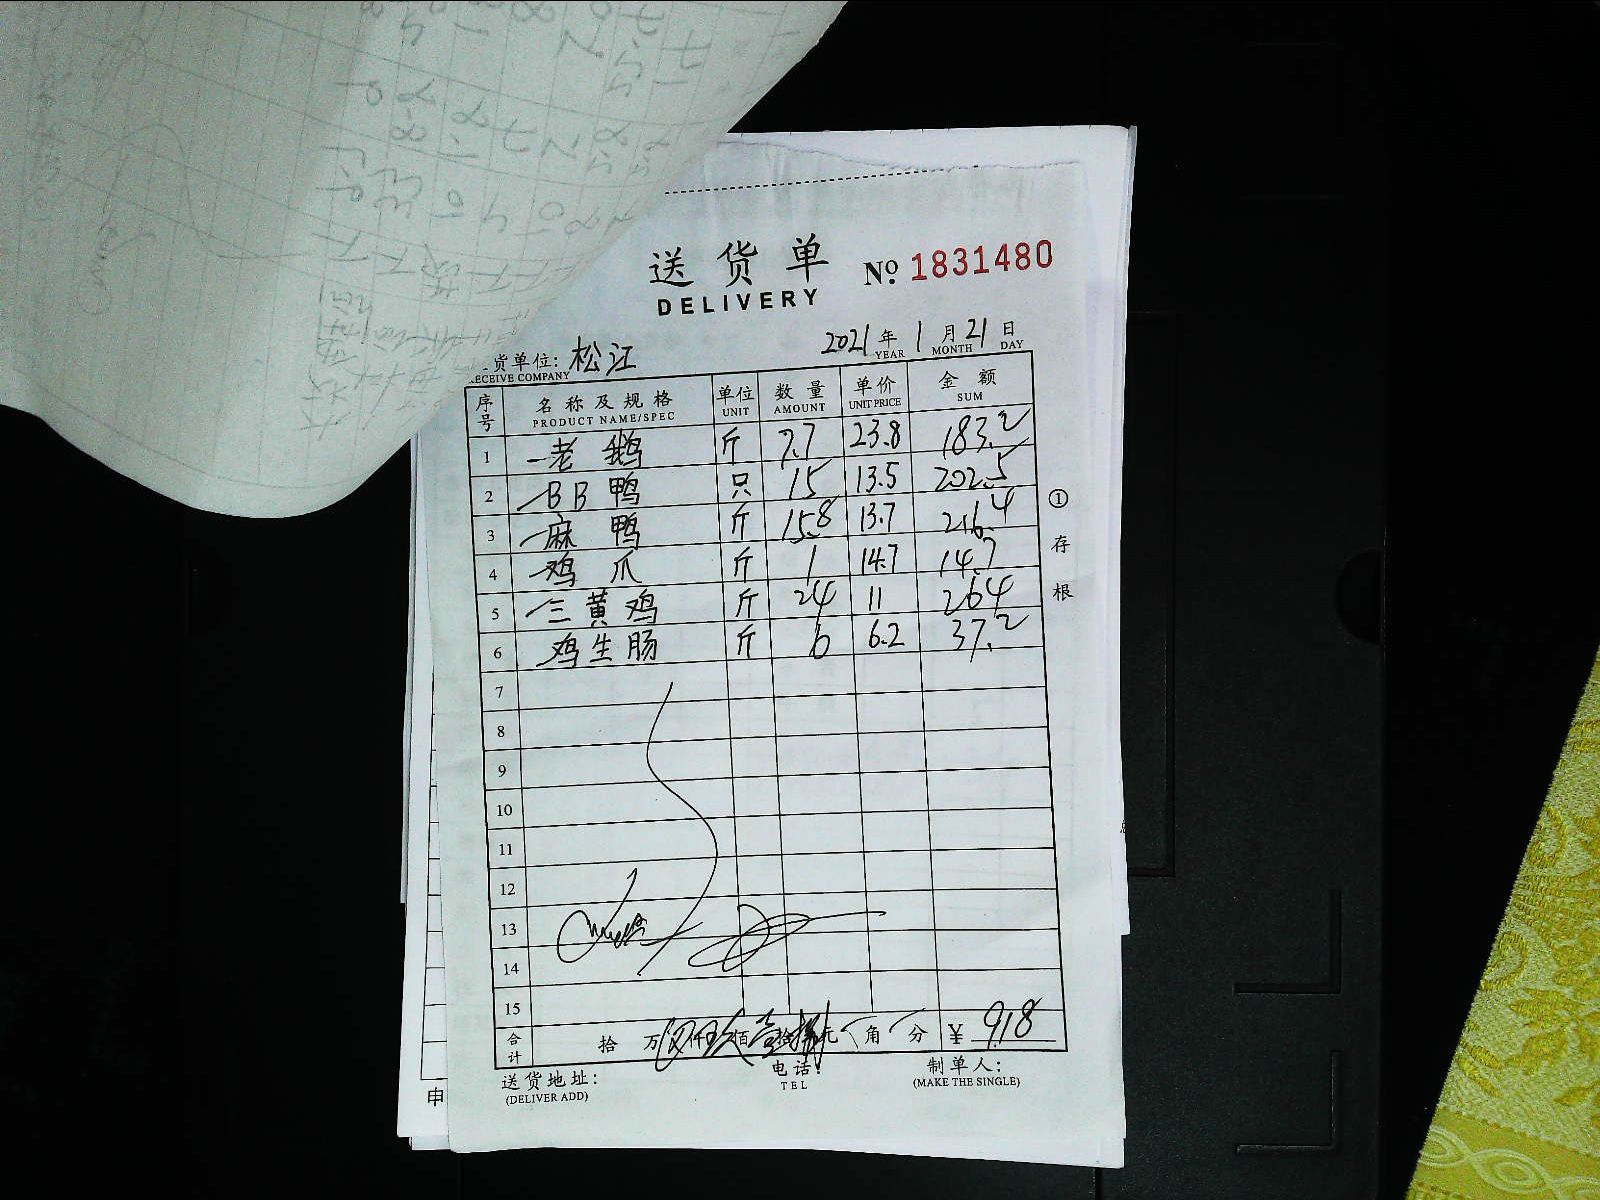 送货单 No 1831480
DELIVERY
2021年1月21日
YEAR MONTH DAY
货单位: 松江
RECEIVE COMPANY
序号 名称及规格 单位 数量 单价 金额
PRODUCT NAME/SPEC UNIT AMOUNT UNIT PRICE SUM
1 老鹅 斤 7.7 23.8 183.2
2 BB鸭 只 15 13.5 202.5
3 麻鸭 斤 15.8 13.7 216.4
4 鸡爪 斤 1 14.7 14.7
5 三黄鸡 斤 24 11 264
6 鸡生肠 斤 6 6.2 37.2
7
8
9
10
11
12
13
14
15
合计 拾 万 仟 玖佰壹拾捌元 角 分 ¥918
送货地址: 电话: 制单人:
(DELIVER ADD) TEL (MAKE THE SINGLE)
①存根
申